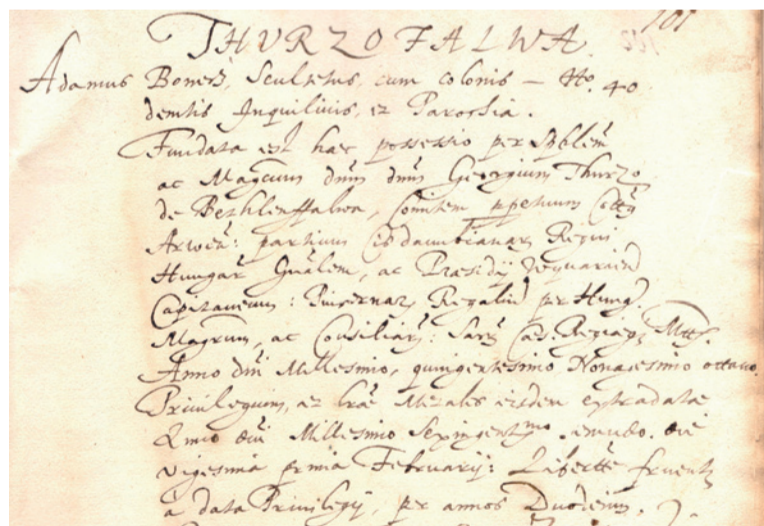 101
THURZOFALWA.
Adamus Boners, Scultetus, cum colonis – No. 40
demtis Inquilinis, et Parochia.
Fundata est haec possessio per Spblem
ac Magcum dnum dnum Georgium Thurzo
de Bethlenffalwa, Comitem ppetuum Cottg
Arwen: partium Cisdanubianar Regni
Hungar Gnalem, ac Praesidij Wywarien
Capitaneum: Pincernar Regaliu per Hung.
Magrum, ac Consiliary: Sacr Caes. Regiaeq Mttis.
Anno dni Millesimo, quingentesimo Nonagesimo octavo.
Privilegium, ac lrae Metales eisdem extradatae
Anno dni Millesimo Sexingentmo. die
vigesima prima February: Libertte fruentr
a data Privilegy, per annos Duodecim.